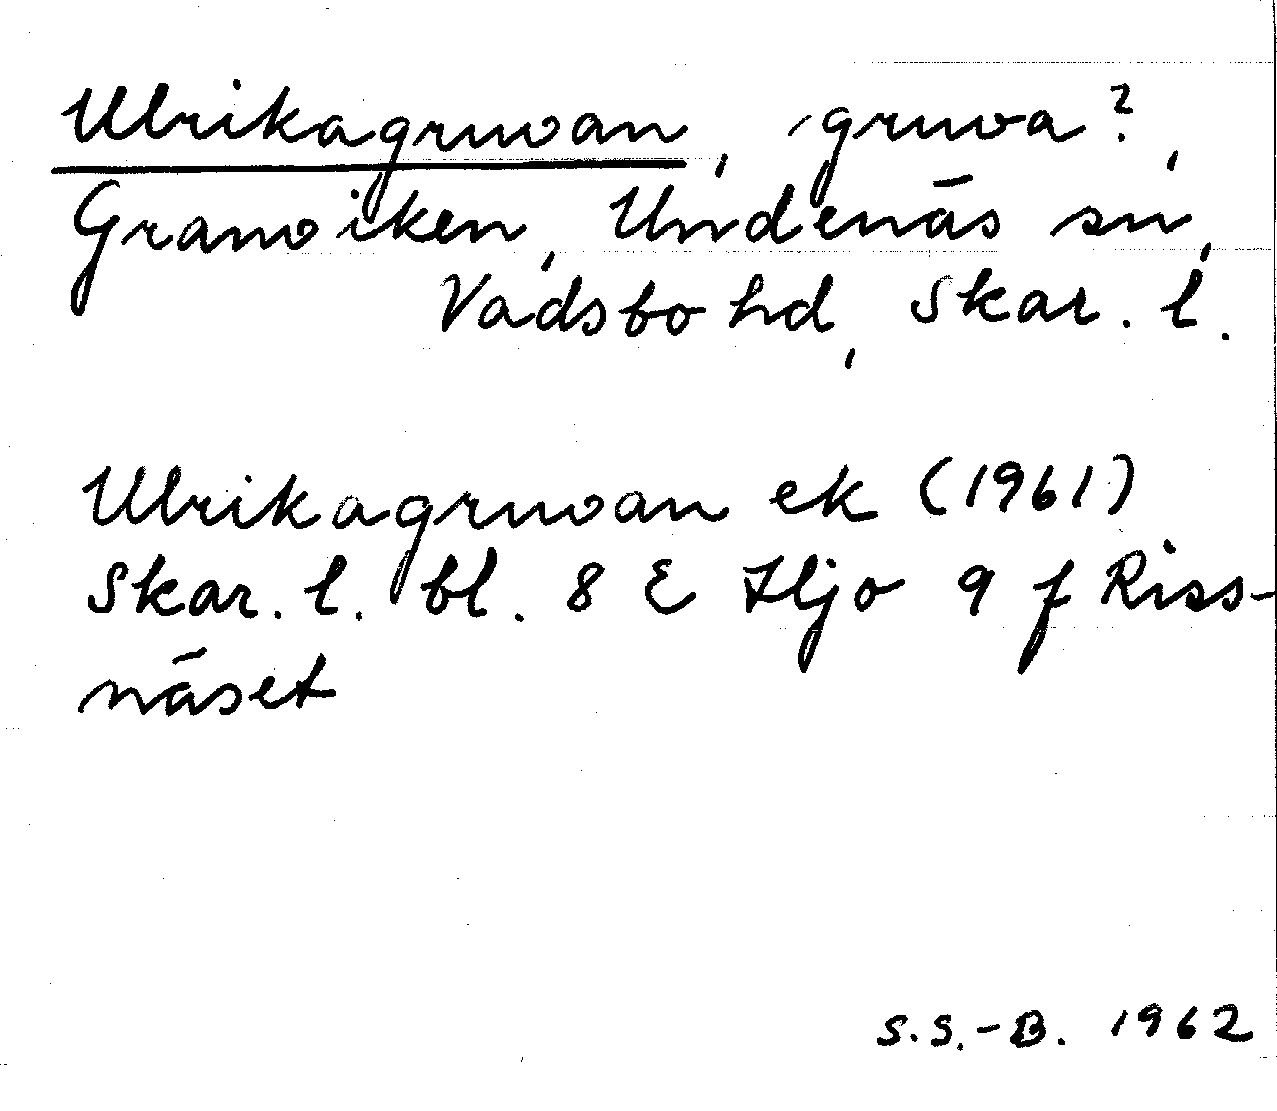 Ulrikagruvan, gruva?,
Granviken, Undenäs sn,
Vadsbo hd, Skar. l.
Ulrikagruvan ek (1961)
Skar. l. bl. 8 E Hjo 9 f Riss-
näset
S.S.-B. 1962